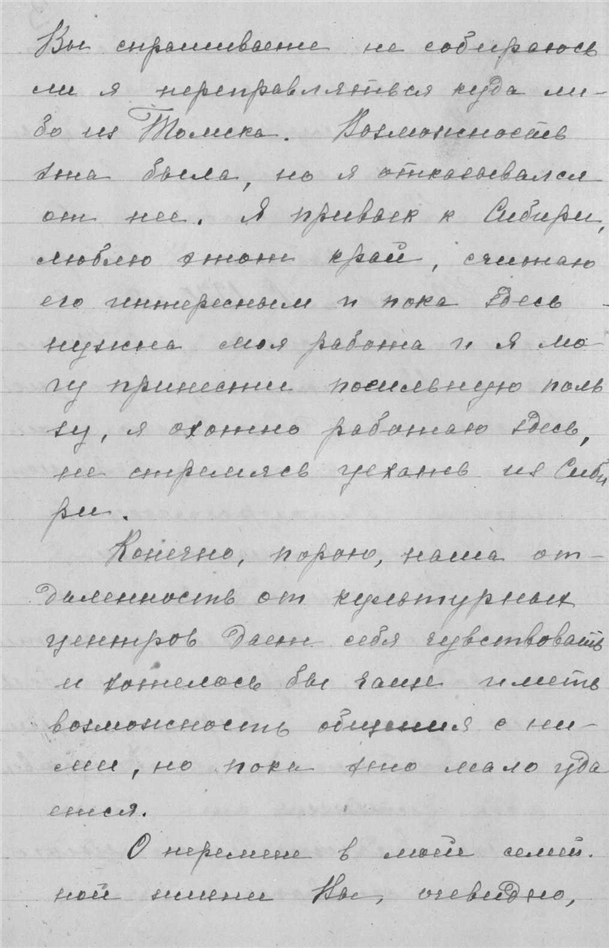 Вы спрашиваете не собираюсь
ли я переправляться куда ли-
бо из Томска. Возможность
эта была, но я отказывался
от нее. Я привык к Сибири,
люблю этот край, считаю
его интересным и пока здесь
нужна моя работа и я мо-
гу принести посильную поль
зу, я охотно работаю здесь,
не стремясь уехать из Сиби
ри.
Конечно, порою, наша от-
даленность от культурных
центров дает себя чувствовать
и хотелось бы чаще иметь
возможность общения с ни-
ми, но пока это мало уда
ется.
О перемене в моей семей.
ной жизни Вы, очевидно,